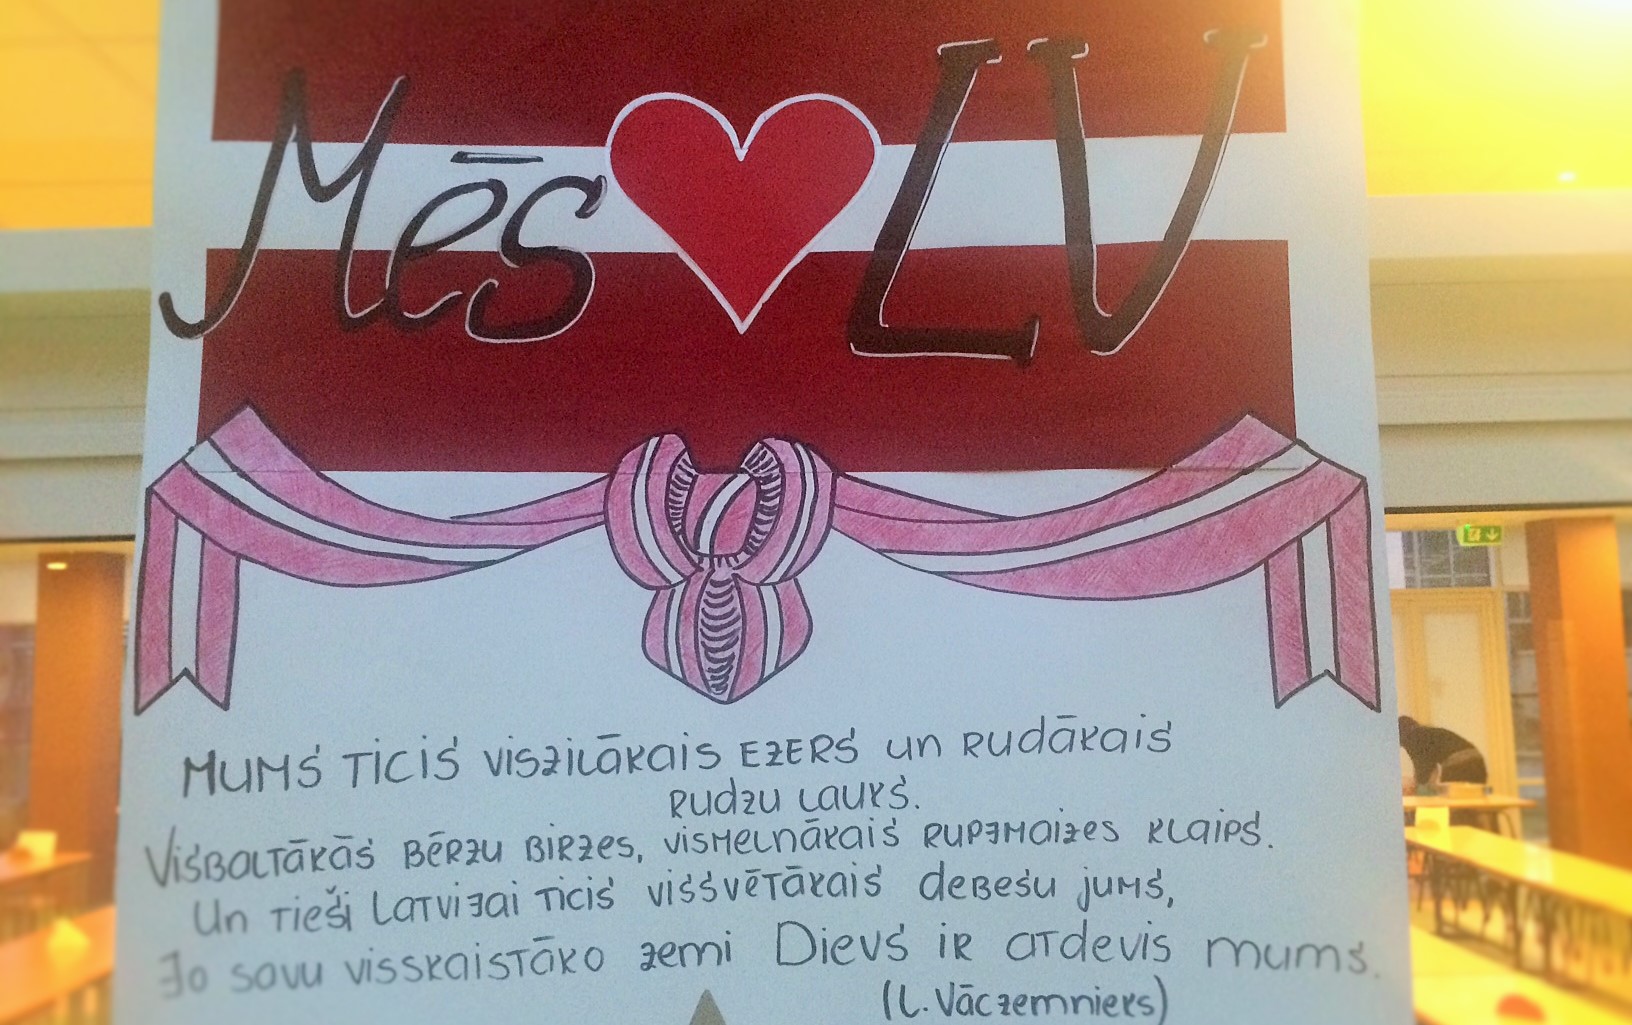 Mēs ♥ LV
Mums ticis viszilākais ezers un rudākais
rudzu lauks.
Visbaltākās bērzu birzes, vismelnākais rupjmaizes klaips.
Un tieši Latvijai ticis vissvētākais debesu jums,
Jo savu visskaistāko zemi Dievs ir atdevis mums.
(L. Vāczemnieks)